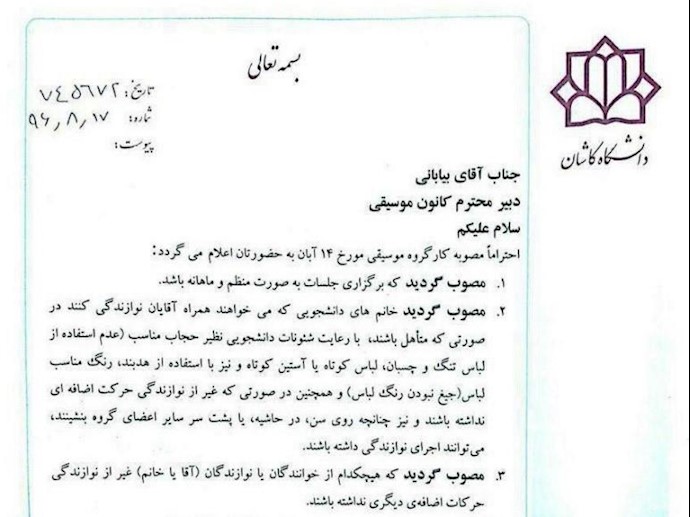 بسمه تعالی
تاریخ: ۷۴۵۶۷۲
شماره: ۹۶٫۸٫۱۷
پیوست:
دانشگاه کاشان
جناب آقای بیابانی
دبیر محترم کانون موسیقی
سلام علیکم
احتراماً مصوبه کارگروه موسیقی مورخ ۱۴ آبان به حضورتان اعلام می گردد:
۱. مصوب گردید که برگزاری جلسات به صورت منظم و ماهانه باشد.
۲. مصوب گردید خانم های دانشجویی که می خواهند همراه آقایان نوازندگی کنند در
صورتی که متأهل باشند، با رعایت شئونات دانشجویی نظیر حجاب مناسب (عدم استفاده از
لباس تنگ و چسبان، لباس کوتاه یا آستین کوتاه و نیز با استفاده از هدبند، رنگ مناسب
لباس(جیغ نبودن رنگ لباس) و همچنین در صورتی که غیر از نوازندگی حرکت اضافه ای
نداشته باشند و نیز چنانچه روی سن، در حاشیه، یا پشت سر سایر اعضای گروه بنشینند،
می‌توانند اجرای نوازندگی داشته باشند.
۳. مصوب گردید که هیچکدام از خوانندگان یا نوازندگان (آقا یا خانم) غیر از نوازندگی
حرکات اضافه‌ی دیگری نداشته باشند.